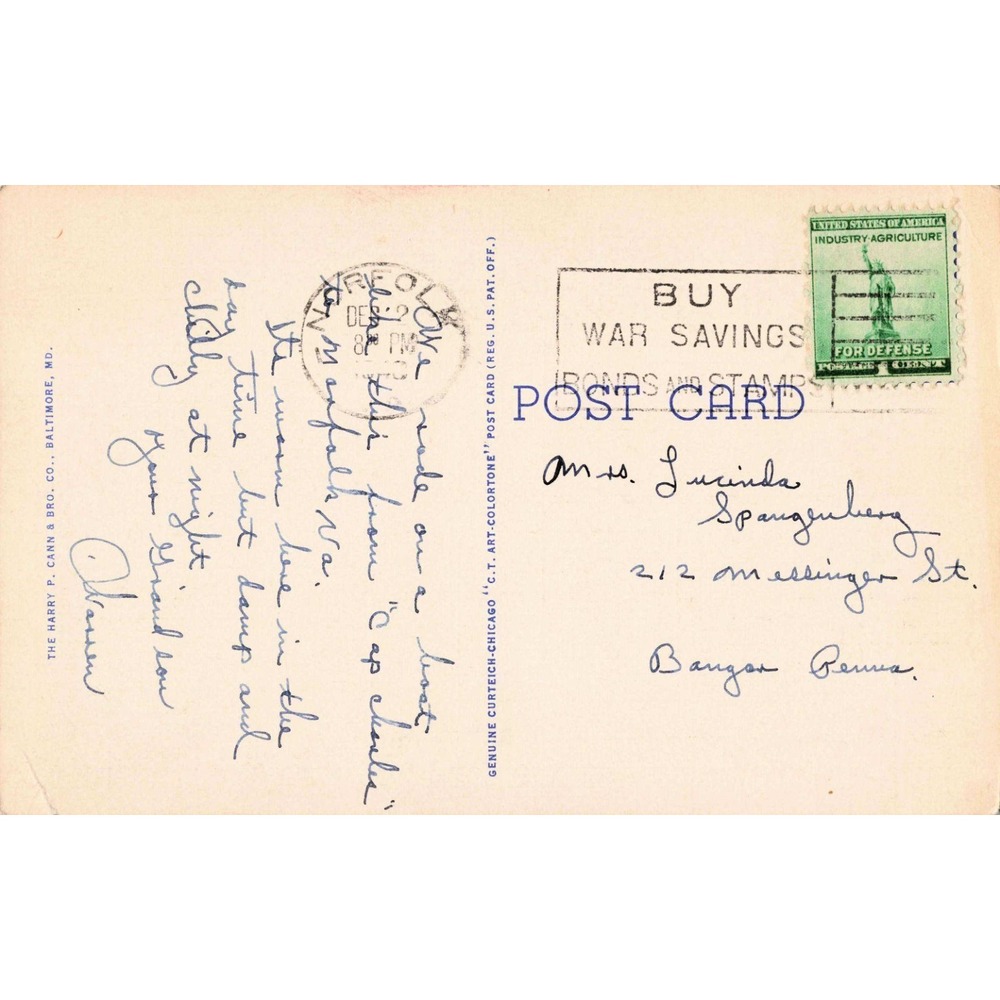 We rode on a boat
like this from "Cap charles"
to Norfolk Va.
Its warm here in the
day time but damp and
chilly at night
your Grandson
Warren
THE HARRY P. CANN & BRO. CO., BALTIMORE, MD.
GENUINE CURTEICH-CHICAGO "C. T. ART-COLORTONE" POST CARD (REG. U. S. PAT. OFF.)
NORFOLK
DEC 2
8 PM
BUY
WAR SAVINGS
BONDS AND STAMPS
UNITED STATES OF AMERICA
INDUSTRY-AGRICULTURE
FOR DEFENSE
POSTAGE 1 CENT
POST CARD
Mrs. Lucinda
Spangenberg
212 Messinger St.
Bangor Penna.